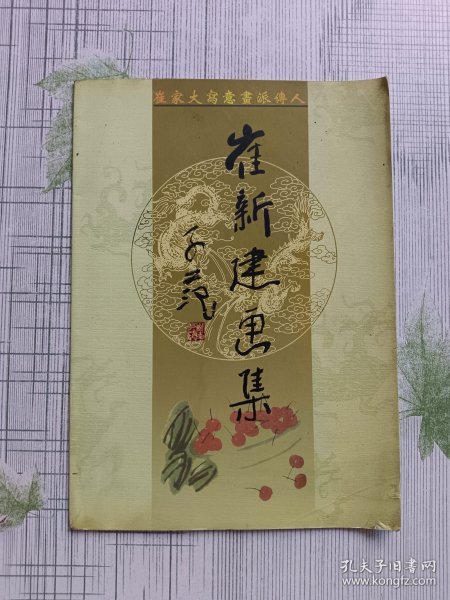 崔家大寫意畫派傳人
崔新建画集
子范
孔夫子旧书网
www.kongfz.com